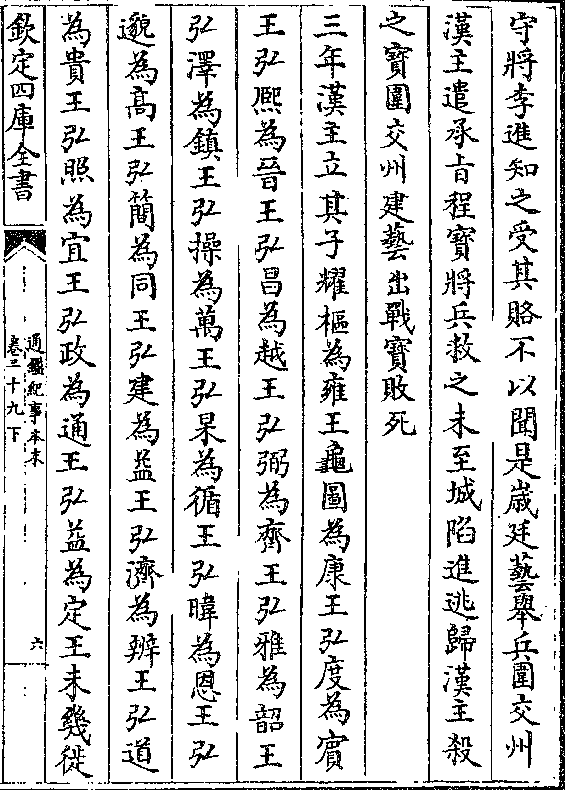 守將李進知之受其賂不以聞是嵗廷藝舉兵圍交州
漢主遣承㫖程寳將兵救之未至城陷進逃歸漢主殺
之寳圍交州建藝出戰寳敗死
三年漢主立其子耀樞為雍王龜圖為康王弘度為賓
王弘熙為晉王弘昌為越王弘弼為齊王弘雅為韶王
弘澤為鎮王弘操為萬王弘杲為循王弘暐為恩王弘
邈為髙王弘簡為同王弘建為益王弘濟為辨王弘道
為貴王弘照為宜王弘政為通王弘益為定王未㡬徙
欽定四庫全書
通鑑紀事本末
卷三十九下
六